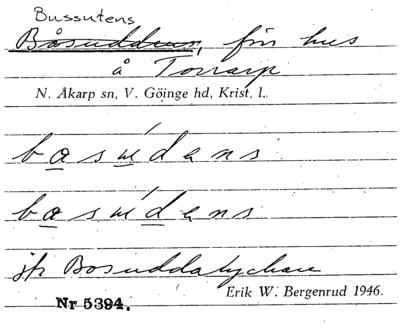 Bussutens
Båsuddens, förr hus
å Torrarp
N. Åkarp sn, V. Göinge hd, Krist. l.
basúdens
basúdens
jfr Bosuddalyckan
Erik W. Bergenrud 1946.
Nr 5394.